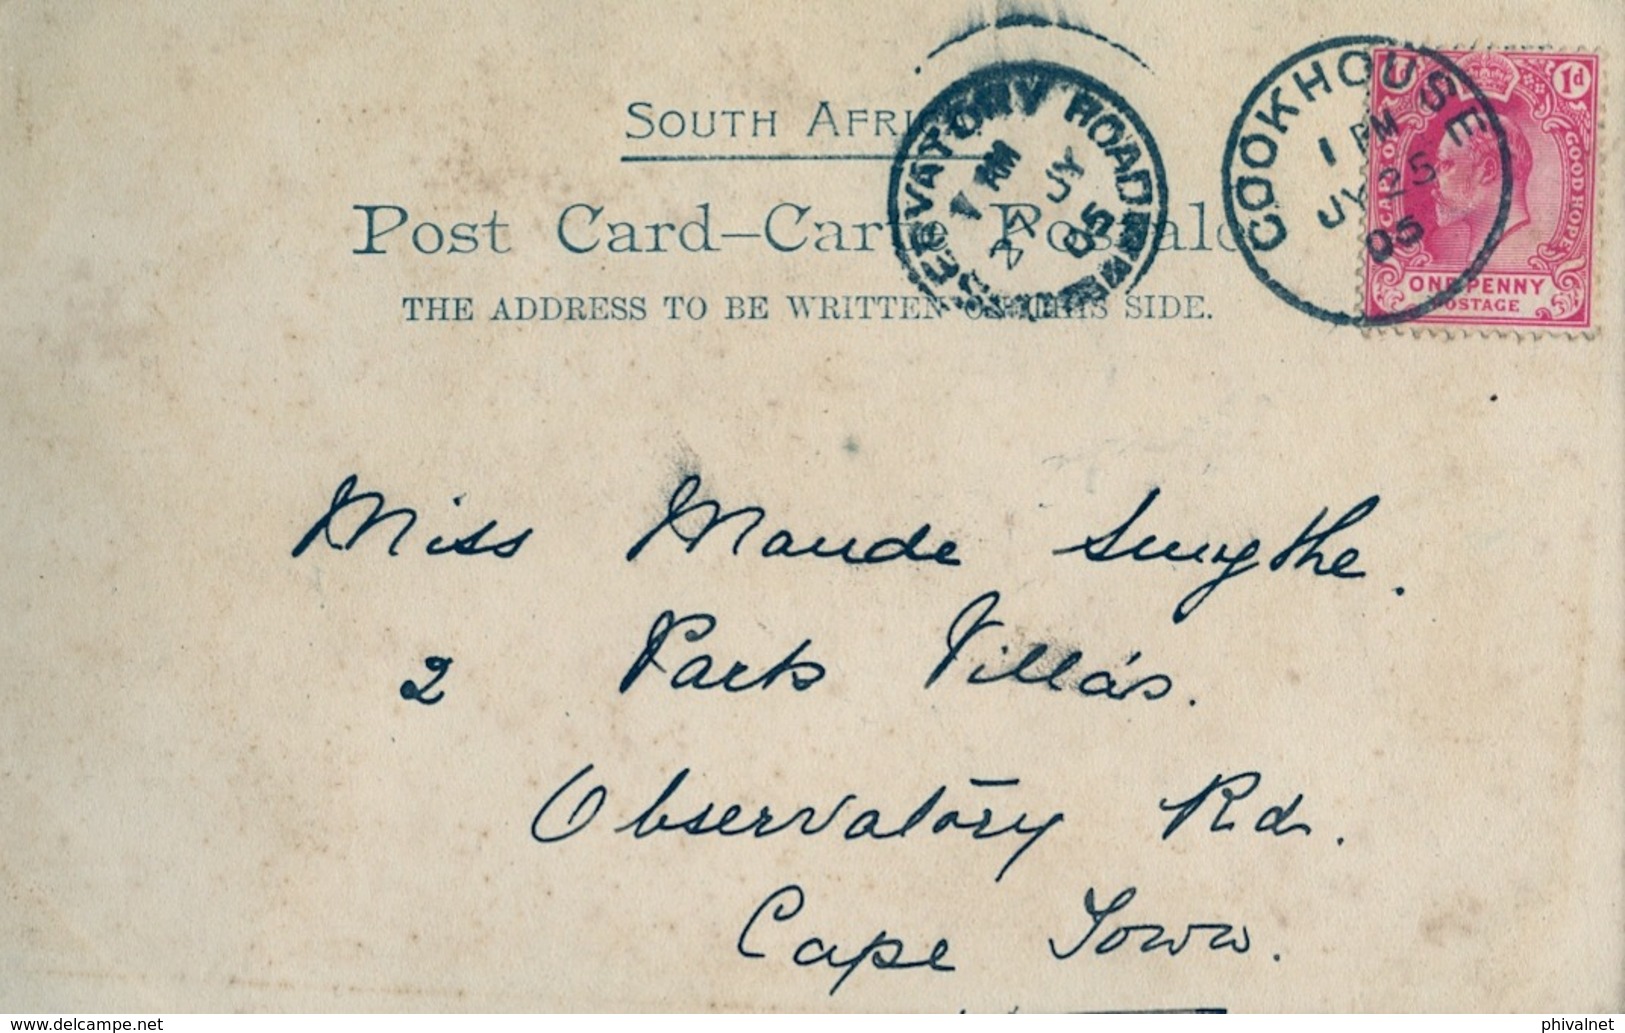 SOUTH AFRICA
Post Card–Carte Postale
THE ADDRESS TO BE WRITTEN ON THIS SIDE.
OBSERVATORY ROAD
AM
JY
05
COOKHOUSE
1 PM
JY 25
05
1d
CAPE OF GOOD HOPE
ONE PENNY
POSTAGE
Miss Maude Smythe.
2 Park Villa's.
Observatory Rd.
Cape Town.
delcampe.net
phivalnet